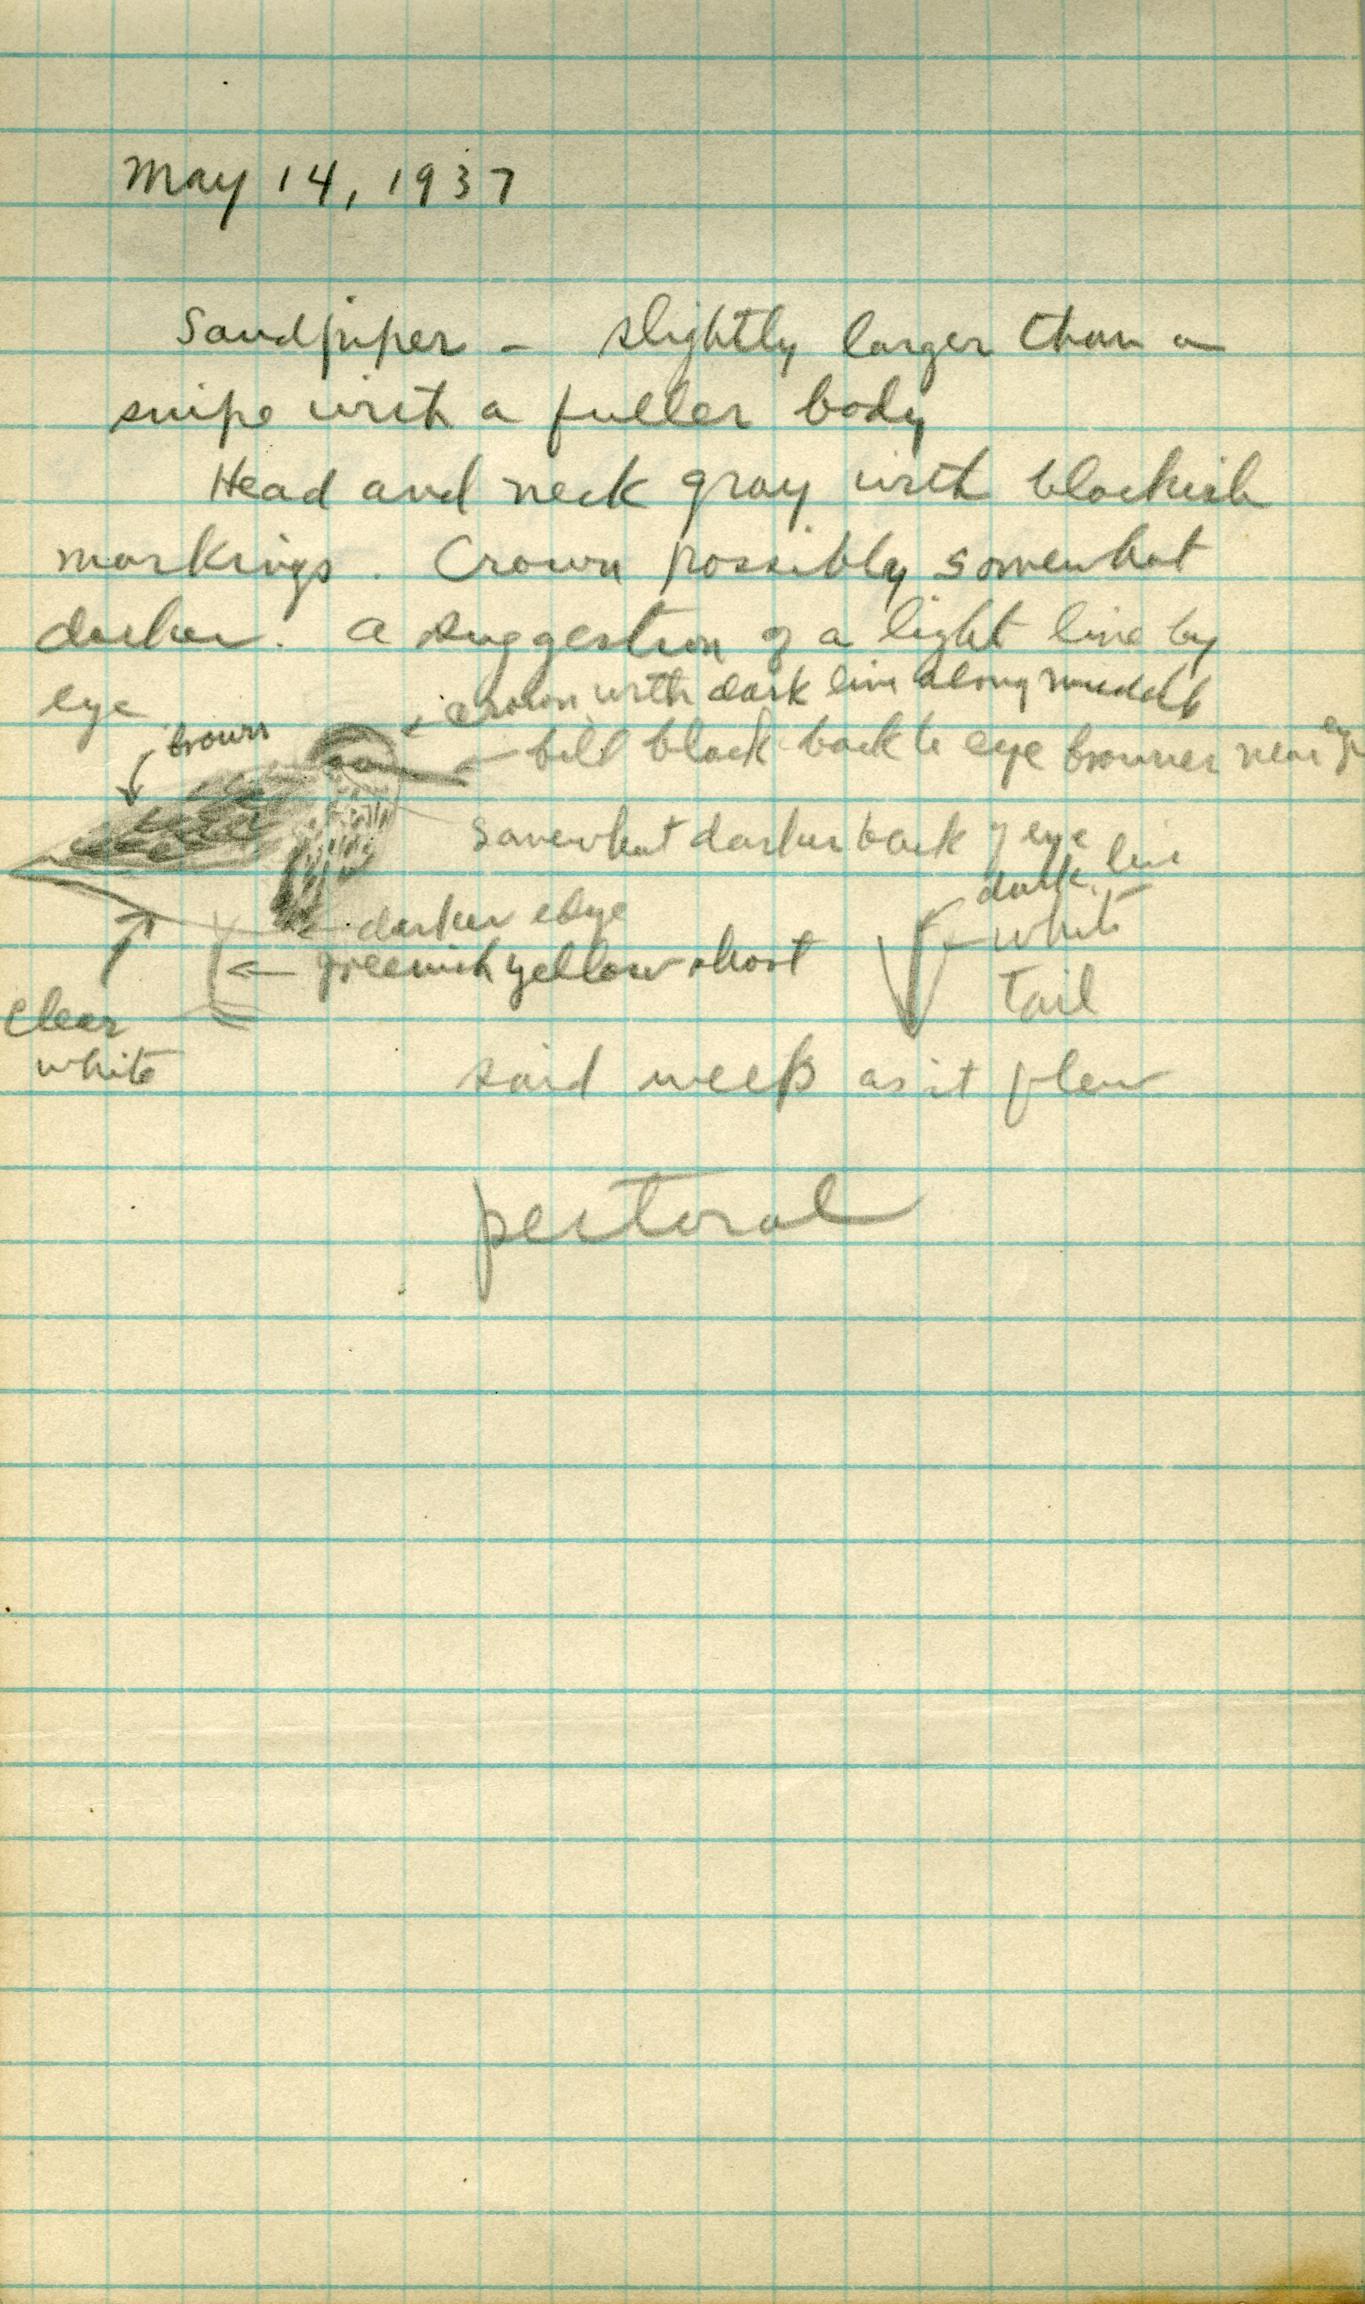 May 14, 1937
Sandpiper - slightly larger than a
snipe with a fuller body
Head and neck gray with blackish
markings. Crown possibly somewhat
darker. a suggestion of a light line by
eye
brown
crown with dark line along middle
bill black back to eye browner near eye
somewhat darker back of eye
dark line
white
tail
darker edge
greenish yellow short
clear
white
said weep as it flew
pectoral